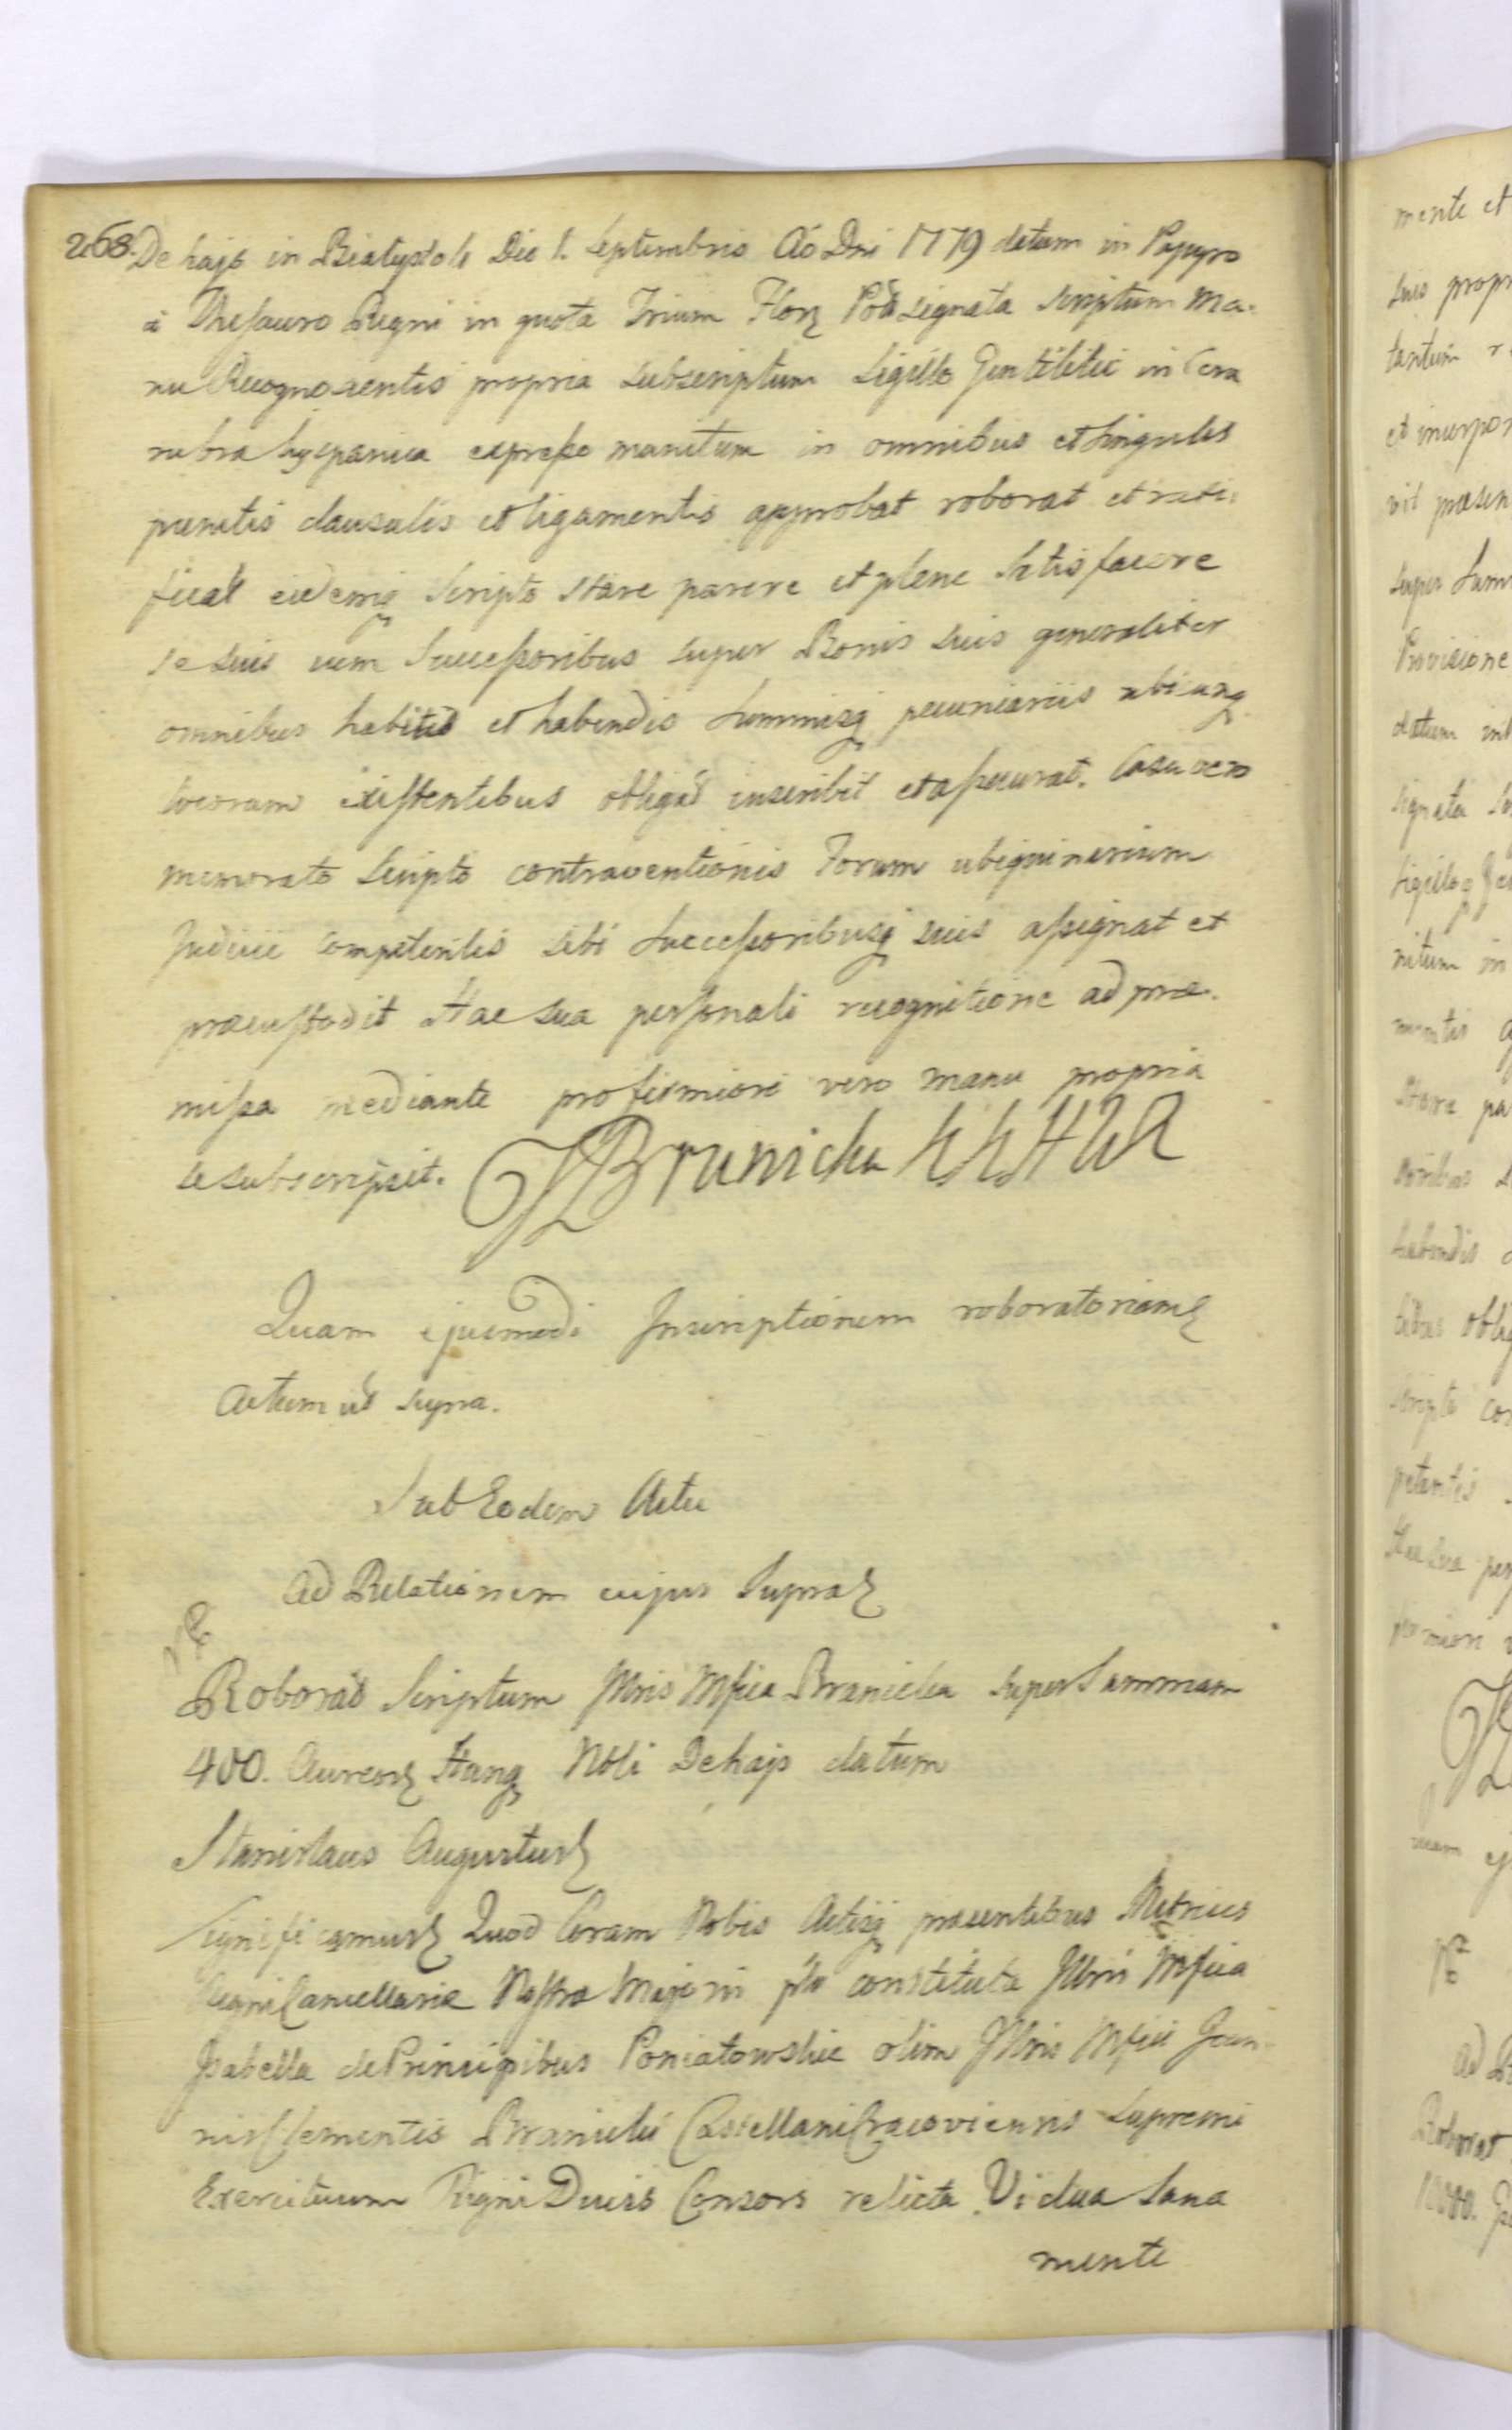 268. De hajs in Białystok Die 1. Septembris Ao Dni 1779 datum in Papyro
a Thesauro Regni in quota Trium Flor. Pol. signata scriptum Ma-
nu Recognoscentis propria subscriptum Sigillo Gentilitii in Cera
rubra hyspanica expresso munitum in omnibus et singulis
punctis clausulis et ligamentis approbat roborat et rati-
ficat eidemq Scripto stare parere et plene satisfacere
se suis cum Successoribus super Bonis suis generaliter
omnibus habitis et habendis Summisq pecuniariis ubicunq
locorum existentibus obligat inscribit et assecurat. Casu vero
memorato Scripto contraventionis Forum ubiquinarium
Judicii competentis sibi Successoribusq suis assignat et
praecustodit Hac sua personali recognitione ad prae-
missa mediante pro firmiori vero manu propria
se subscripsit. J Branicka K K H W K
Quam ejusmodi Inscriptionem roboratoriam
Actum ut supra.
Sub Eodem Actu
Ad Relationem cujus Supra
Roborat Scriptum Illris Mficae Branicka super Summam
400. Aureor Hung Nbli Dehajs datum
Stanislaus Augustus
Significamus Quod Coram Nobis Actisq praesentibus Metrices
Regni Cancellariae Nostrae Majoris plr constituta Illris Mfica
Isabella de Principibus Poniatowskie olim Illris Mfici Joan-
nis Clementis Branicki Castellani Cracoviensis Supremi
Exercituum Regni Ducis Consors relicta Vidua Sana
mente
mente et
suis propr
tantum
et incorpor
vit praesen
super Summ
Provisione
datum int
signata
Sigillo
nitum in
mentis
stare pa
habendis
obli
Scripto con
petentis
miori
Ad
Roborat